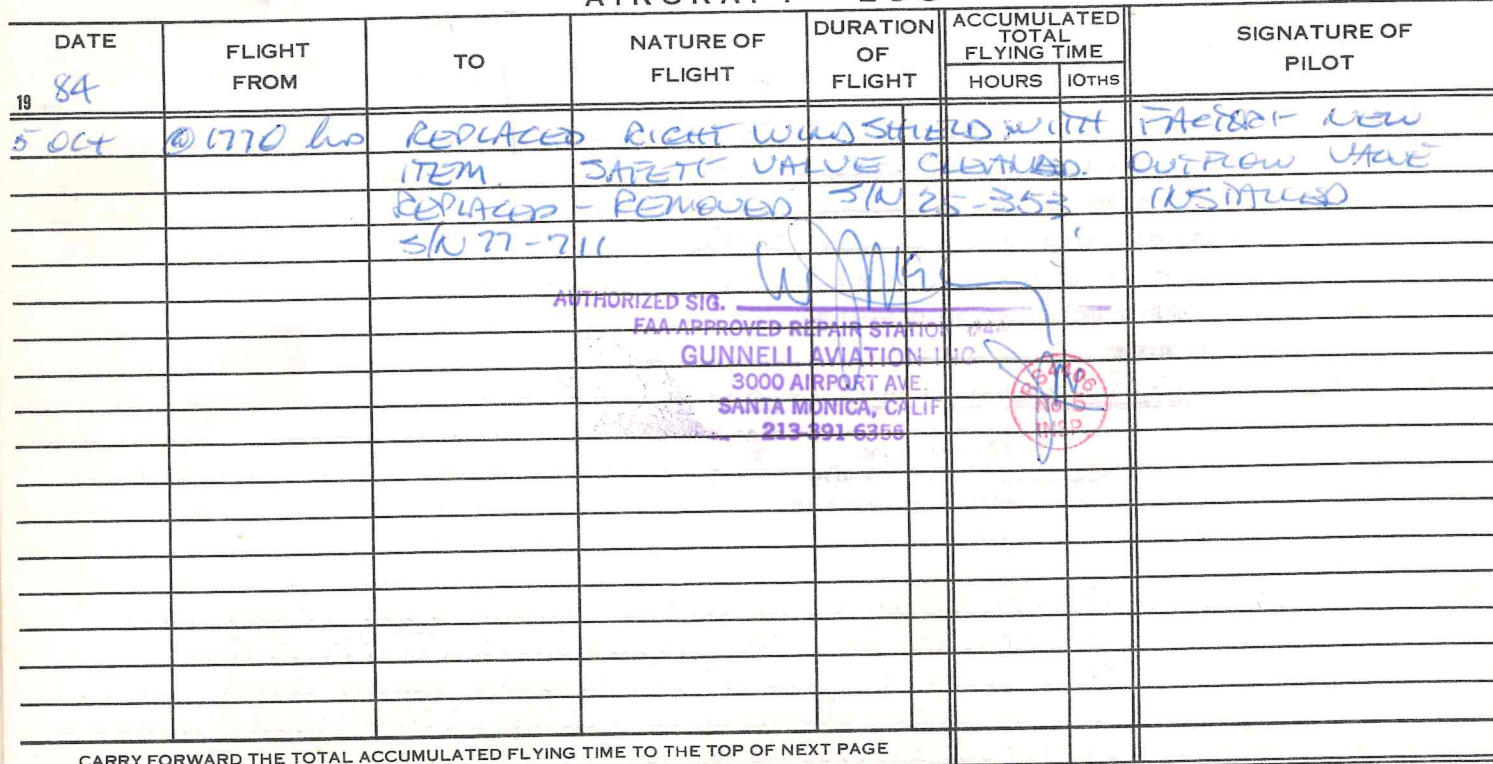 AIRCRAFT LOG
DATE
FLIGHT FROM
TO
NATURE OF FLIGHT
DURATION OF FLIGHT
ACCUMULATED TOTAL FLYING TIME
HOURS
10THS
SIGNATURE OF PILOT
19 84
5 OCT @ 1770 hrs REPLACED RIGHT WINDSHIELD WITH FACTORY NEW
ITEM. SAFETY VALVE CLEANED. OUTFLOW VALVE
REPLACED - REMOVED S/N 25-353 INSTALLED
S/N 77-711
AUTHORIZED SIG.
FAA APPROVED REPAIR STATION
GUNNELL AVIATION INC
3000 AIRPORT AVE.
SANTA MONICA, CALIF
213-391-6356
RS4406
No 5
INSP
CARRY FORWARD THE TOTAL ACCUMULATED FLYING TIME TO THE TOP OF NEXT PAGE